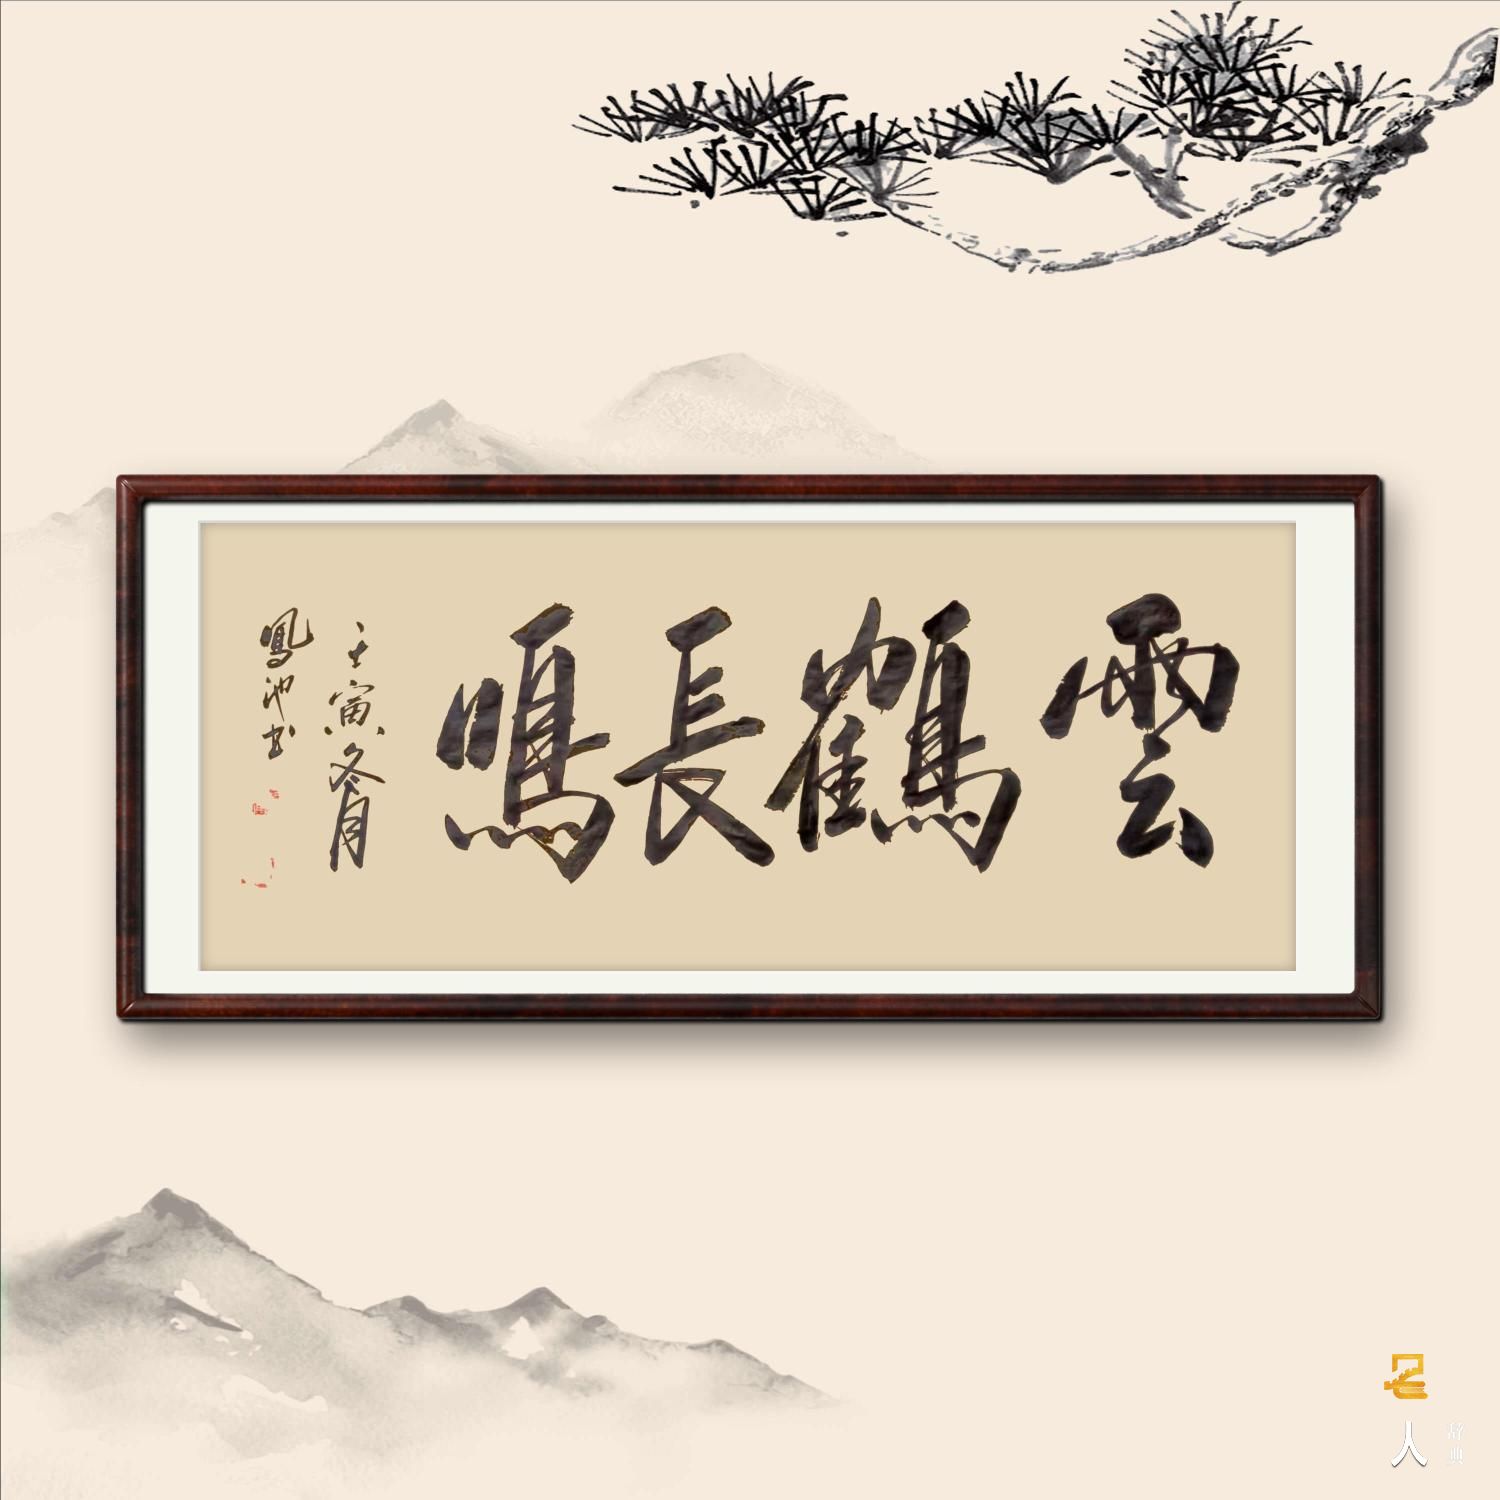 雲鶴長鳴
壬寅冬月
鳳池书
名人
辞典